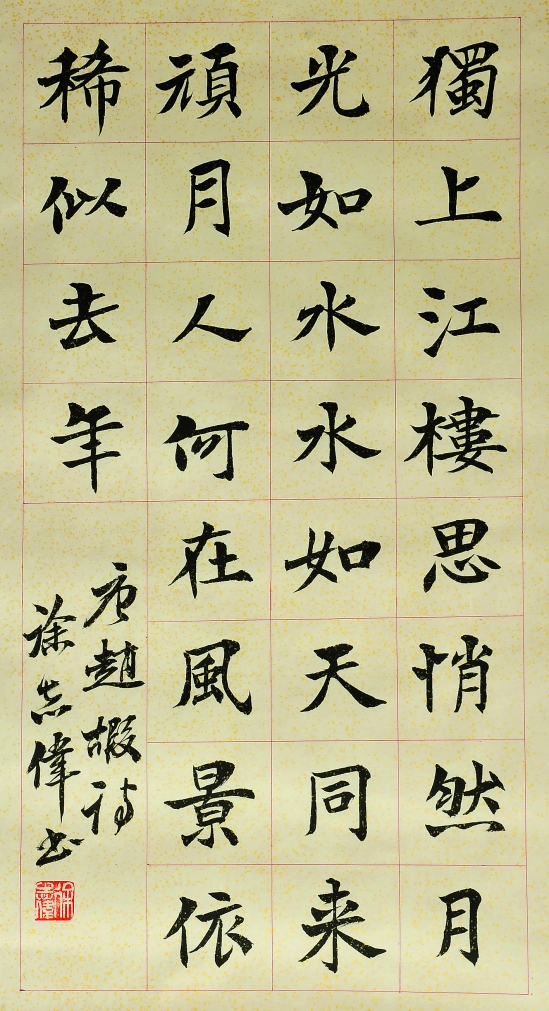 獨上江樓思悄然月
光如水水如天同来
頑月人何在風景依
稀似去年
唐趙嘏詩
徐志偉书